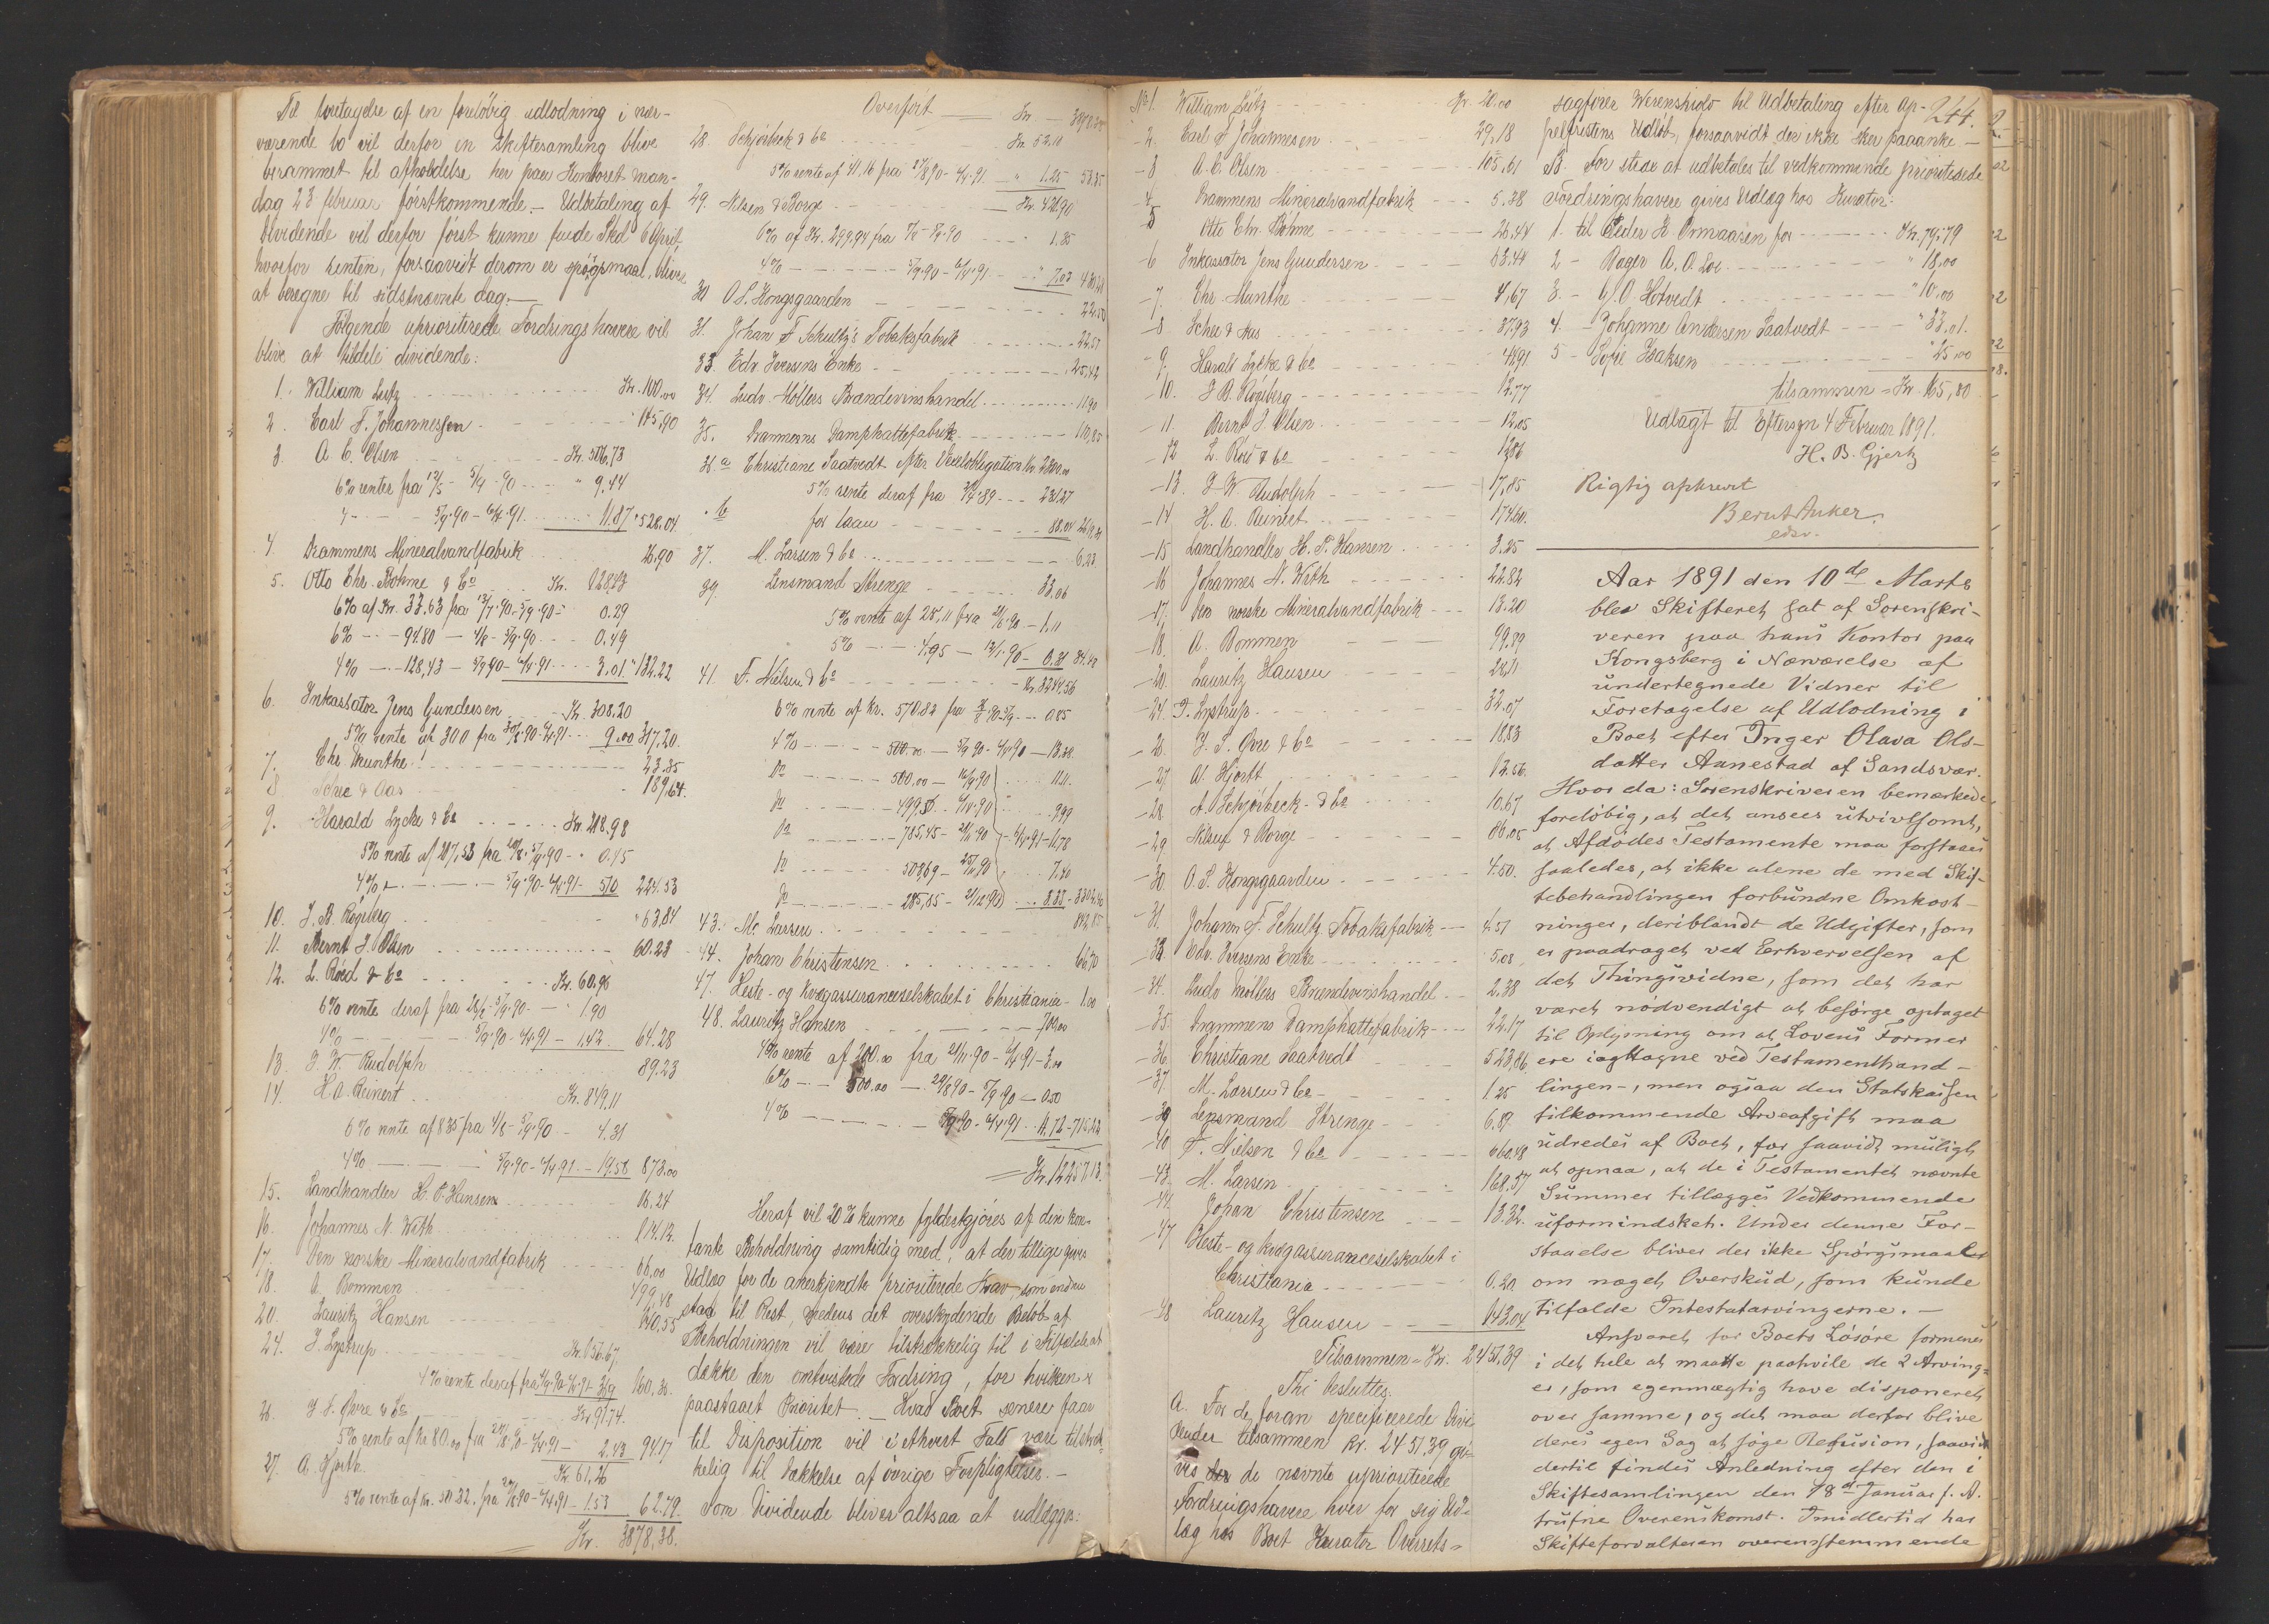 Til foretagelse af en foreløbig udlodning i nær-
værende bo vil derfor en Skiftesamling blive
berammet til afholdelse her paa Kontoret man-
dag 23 februar førstkommende. – Udbetaling af
dividende vil derfor først kunne finde Sted 6 April,
hvorfor renten, forsaavidt derom er spørgsmaal, blive
at beregne til sidstnævnte dag. –
Følgende uprioriterede Fordringshavere vil
blive at tildele dividende:
1. William Lütz Kr. 100,00
2. Carl F. Johannessen 145,90
3. A. C. Olsen Kr. 506,73
6% renter fra 12/5 - 5/9 90 " 9,44
4 - 5/9 90 - 6/4 91 11.87 " 528,04
4. Drammens Mineralvandfabrik 26,90
5. Otto Chr. Bohme & Co Kr. 128,43
6% af Kr. 33.63 fra 13/7 90 - 5/9 90 = 0.29
6% - - 94.80 - 4/8 - 5/9 90 0.49
4% - - 128,43 - 5/9 90 - 6/4 91 3.01 " 132.22
6. Inkassator Jens Gundersen Kr. 308,20
5% rente af 300 fra 30/8 90 - 6/4 91 9,00 317,20.
7. Chr. Munthe 23.35
8 Schee & Aas 189,64.
9. Harald Lycke & Co Kr. 218,98
5% rente af 217,53 fra 20/8 - 5/9 90 - 0.45
4% - 5/9 90 - 6/4 91 - 5,10 224.53
10. J. B. Røgeberg " 63,84
11. Bernt J. Olsen 60.23
12. L. Røed & Co Kr. 60,96
6% rente deraf fra 28/2 - 5/9 90 - " 1,90
4% - 5/9 90 - 6/4 91 - 1,42 64.28
13. J. W. Rudolph 89.23
14. H. A. Reinert Kr. 849,11
6% rente af 835 fra 4/8 - 5/9 90 - 4.31
4% - 5/9 90 - 6/4 91 - 19.58 873.00
15. Landhandler H. P. Hansen 16,24
16. Johannes N. With 114.12.
17. Den norske Mineralvandfabrik 66,00
18. A. Bommen 499,48
20. Lauritz Hansen 140,55
24. J. Lystrup Kr. 156.67,
4% rente deraf fra 5/9 90 - 6/4 91 - 3,69 160,36.
26. J. S. Øvre & Co Kr. 91.74.
5% rente af kr 80.00 fra 24/8 90 - 6/4 91 - 2.43 94.17
27. A. Hjorth Kr. 61,26
5% rente af kr. 50.32. fra 20/8 90 - 6/4 91 - 1.53 62.79.
Kr. 3878,38.
Overført Kr. 3878.38
28. Schjørbeck & Co Kr. 52.10
5% rente af 41,16 fra 27/8 90 - 6/4 91 - " 1.25 53.35
29. Nilsen & Borge Kr. 421,90
6% af Kr. 299,94 fra 7/8 - 5/9 90 1.35
4% - 5/9 90 - 6/4 91 - " 7,03 430,28
30 O. S. Kongsgaarden 22.50
31. Johan F. Schultz's Tobaksfabrik 22.57
33. Edv. Iversens Enke 25,42
34. Ludv. Møllers Brændevinshandel 11,90
35. Drammens Damphattefabrik 110,85
36. a Christiane Saatvedt efter Vexelobligation Kr. 2300.00
5% rente deraf fra 3/4 89 231.27
" b for laan 88.04 2619,31
37. M. Larsen & Co 6.23
39. Lensmand Strenge 33,06
5% rente af 28,11 fra 21/6 90 - 1,11
5% - 4,95 - 12/1 90 - 0.31 34.48
41. F. Nielsen & Co Kr. 3244.56
6% rente af Kr. 570.82 fra 27/8 90 5/9 0.85
4% - 500.00 - 5/9 90 - 6/4 90 - 13.28
Do - 500,00 - 16/9 90 11.11.
Do - 499,50 - 6/10 90 9,99
Do - 785,45 - 21/11 90 - 6/4 91 - 11.78
Do - 508,69 - 25/11 90 7.40
Do - 285,85 - 21/12 90 3.33 - 3302,40
43. M. Larsen 842,85
44. Johan Christensen 66,70
47. Heste- og Kvægassuranceselskabet i Christiania - 1,00
48. Lauritz Hansen 700,00
4% rente af 200.00 fra 21/11 90 - 6/4 91 - 3,00
6% - - 500.00 - 29/8 90 - 5/9 90 - 0.50
4% - 5/9 90 - 6/4 91 11.72 - 715,22
Kr. 12257,13.
Heraf vil 20% kunne fyldestgjøres af den kon-
tante Beholdning samtidig med, at der tillige gives
Udlæg for de anerkjendte prioriterede Krav, som endnu
staa til Rest, medens det overskydende Beløb af
Beholdningen vil være tilstrækkelig til i Tilfælde at
dække den omtvistede Fordring, for hvilken er
paastaaet Prioritet. – Hvad Boet senere faar
til Disposition vil i ethvert Fald være tilstræk-
kelig til Dækkelse af øvrige Forpligtelser. –
Som Dividende bliver altsaa at udlægge:
No 1. William Lütz Kr. 20.00
- 2. Carl F. Johannesen 29,18
- 3 A. C. Olsen 105,61
- 4 Drammens Mineralvandfabrik 5.38
5 Otto Chr. Bohme 26,44
- 6 Inkassator Jens Gundersen 63.44
- 7. Chr. Munthe 4,67
- 8 Schee & Aas 37.93
- 9. Harald Lycke & Co 44.91
- 10. J. B. Røgeberg 12,77
- 11 Bernt J. Olsen 12,05
- 12 L. Røed & Co 12,86
- 13. J. W. Rudolph 17,85
- 14 H. A. Reinert 174,60.
- 15 Landhandler H. P. Hansen 3.25
- 16 Johannes N. With 22.82
- 17. Den norske Mineralvandfabrik 13.20
- 18. A. Bommen 99.89
- 20. Lauritz Hansen 28,11
- 24. J. Lystrup 32.07
- 26. J. S. Øvre & Co 18.83
- 27 A. Hjorth 12.56.
- 28 A. Schjørbeck & Co 10.67
- 29 Nilsen & Borge 86.05
- 30. O. S. Kongsgaarden 4.50.
- 31. Johann F. Schultz Tobaksfabrik 4.51
- 33 Edv. Iversens Enke 5,08
- 34. Ludv. Møllers Brændevinshandel 2.38
- 35. Drammens Damphattefabrik 22.17
- 36. Christiane Saatvedt 523,86
- 37. M. Larsen & Co 1.25
- 39 Lensmand Strenge 6.89.
- 40 F. Nielsen & Co 660,48
- 43. M. Larsen 168.57
- 44. Johan Christensen 13.32.
- 47 Heste- og Kvægassuranceselskabet i
Christiania 0.20.
- 48 Lauritz Hansen 143,04
Tilsammen = Kr. 2451,39
Thi besluttes:
A. For de foran specificerede Divi-
dender tilsammen kr. 2451,39 gi-
ves de nævnte uprioriterede
Fordringshavere hver for sig Ud-
læg hos Boet Kurator Overrets-
244.
sagfører Werenskiold til Udbetaling efter Ap-
pelfristens Udløb, forsaavidt der ikke sker paaanke. –
B. For strax at udbetales til vedkommende prioriterede
Fordringshavere gives Udlæg hos Kurator:
1. til Peder H Ormaasen for Kr. 79,79
2 - Aager A. O. Loe " 18.00
3. - G. O. Hotvedt " 10,00
4. - Johanne Andersen Saatvedt " 33,01.
5 - Sofie Isaksen " 25,00
tilsammen = Kr. 165,80
Udlagt til Eftersyn 4 Februar 1891.
H. B. Gjertz
Rigtig afskrevet
Bernt Anker.
edsv.
Aar 1891 den 10de Marts
blev Skifteret sat af Sorenskri-
veren paa hans Kontor paa
Kongsberg i Nærværelse af
undertegnede Vidner til
Foretagelse af Udlodning i
Boet efter Inger Olava Ols-
datter Aanestad af Sandsvær.
Hvor da: Sorenskriveren bemærkede
foreløbig, at det ansees utvivlsomt,
at Afdødes Testamente maa forstaaes
saaledes, at ikke alene de med Skif-
tebehandlingen forbundne Omkost-
ninger, deriblandt de Udgifter, som
er paadraget ved Eerhvervelsen af
det Thingsvidne, som det har
været nødvendigt at besørge optaget
til Oplysning om at Lovens Former
ere iagttagne ved Testamenthand-
lingen –, men ogsaa den Statskassen
tilkommende Arveafgift maa
udredes af Boet, for saavidt muligt
at opnaa, at de i Testamentet nævnte
Summer tillægges Vedkommende
uformindsket. Under denne For-
staaelse bliver der ikke Spørgsmaal
om noget Overskud, som kunde
tilfalde Intestatarvingerne. –
Ansvaret for Boets Løsøre formenes
i det hele at maatte paahvile de 2 Arving-
er, som egenmægtig have disponeret
over samme, og det maa derfor blive
deres egen Sag at søge Refusion, saavidt
dertil findes Anledning efter den i
Skiftesamlingen den 18de Januar f. A.
trufne Overenskomst. Imidlertid har
Skifteforvalteren overensstemmende